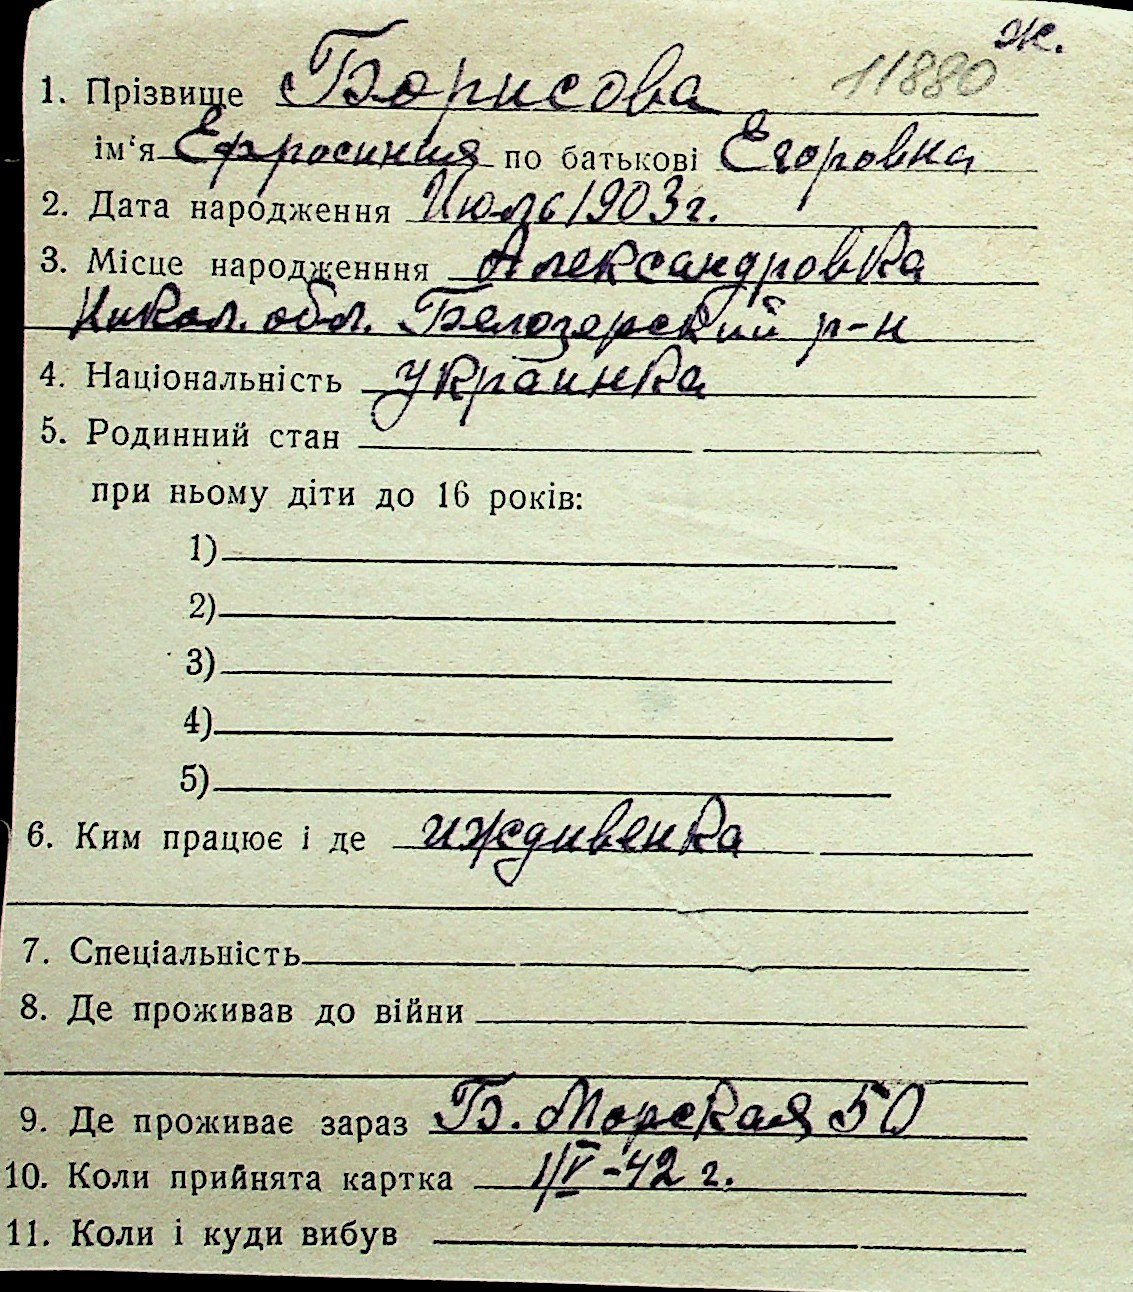 ж.
11880
1. Прізвище Борисова
ім'я Ефросиния по батькові Егоровна
2. Дата народження Июль 1903 г.
3. Місце народженння Александровка
Никол. обл. Белозерский р-н
4. Національність украинка
5. Родинний стан
при ньому діти до 16 років:
1)
2)
3)
4)
5)
6. Ким працює і де иждивенка
7. Спеціальність
8. Де проживав до війни
9. Де проживає зараз Б. Морская 50
10. Коли прийнята картка 1/V-42 г.
11. Коли і куди вибув